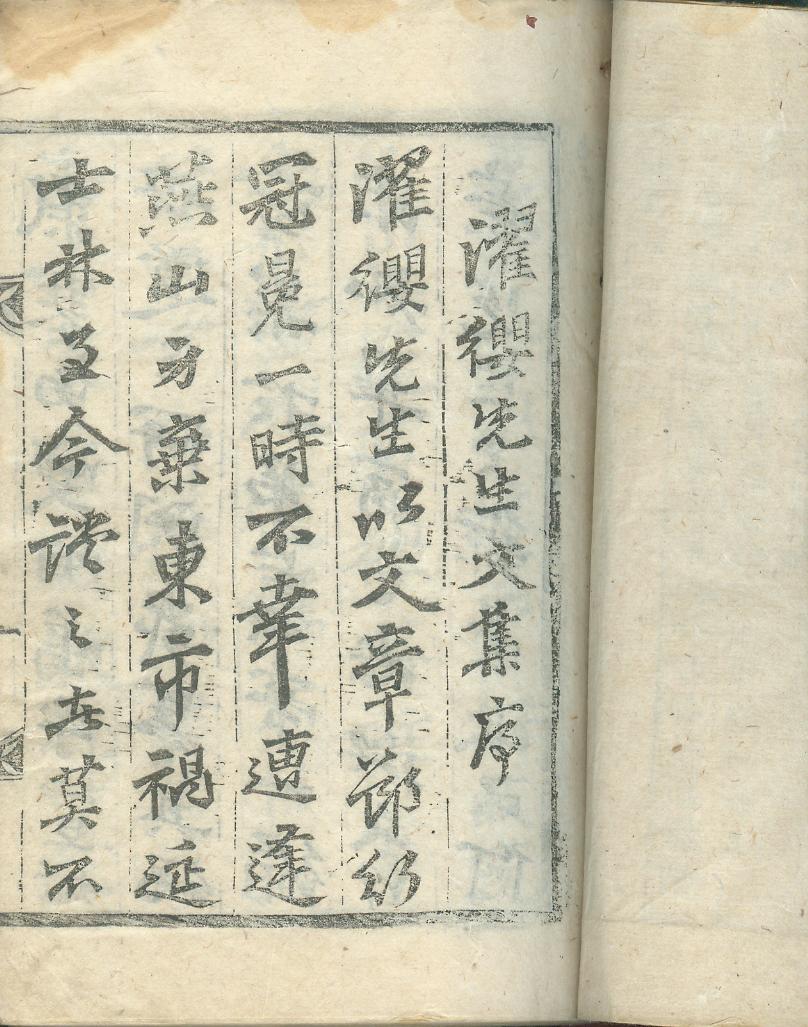 濯纓先生文集序
濯纓先生以文章節行
冠冕一時不幸遭逢
燕山身棄東市禍延
士林至今談之者莫不